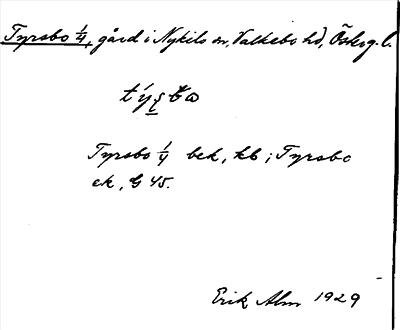 Tyrsbo 1/4, gård i Nykils sn, Valkebo hd, Östog. l.
Tyrsbo 1/4 bek, kb; Tyrsbo
ek, G 45.
Erik Alm 1929